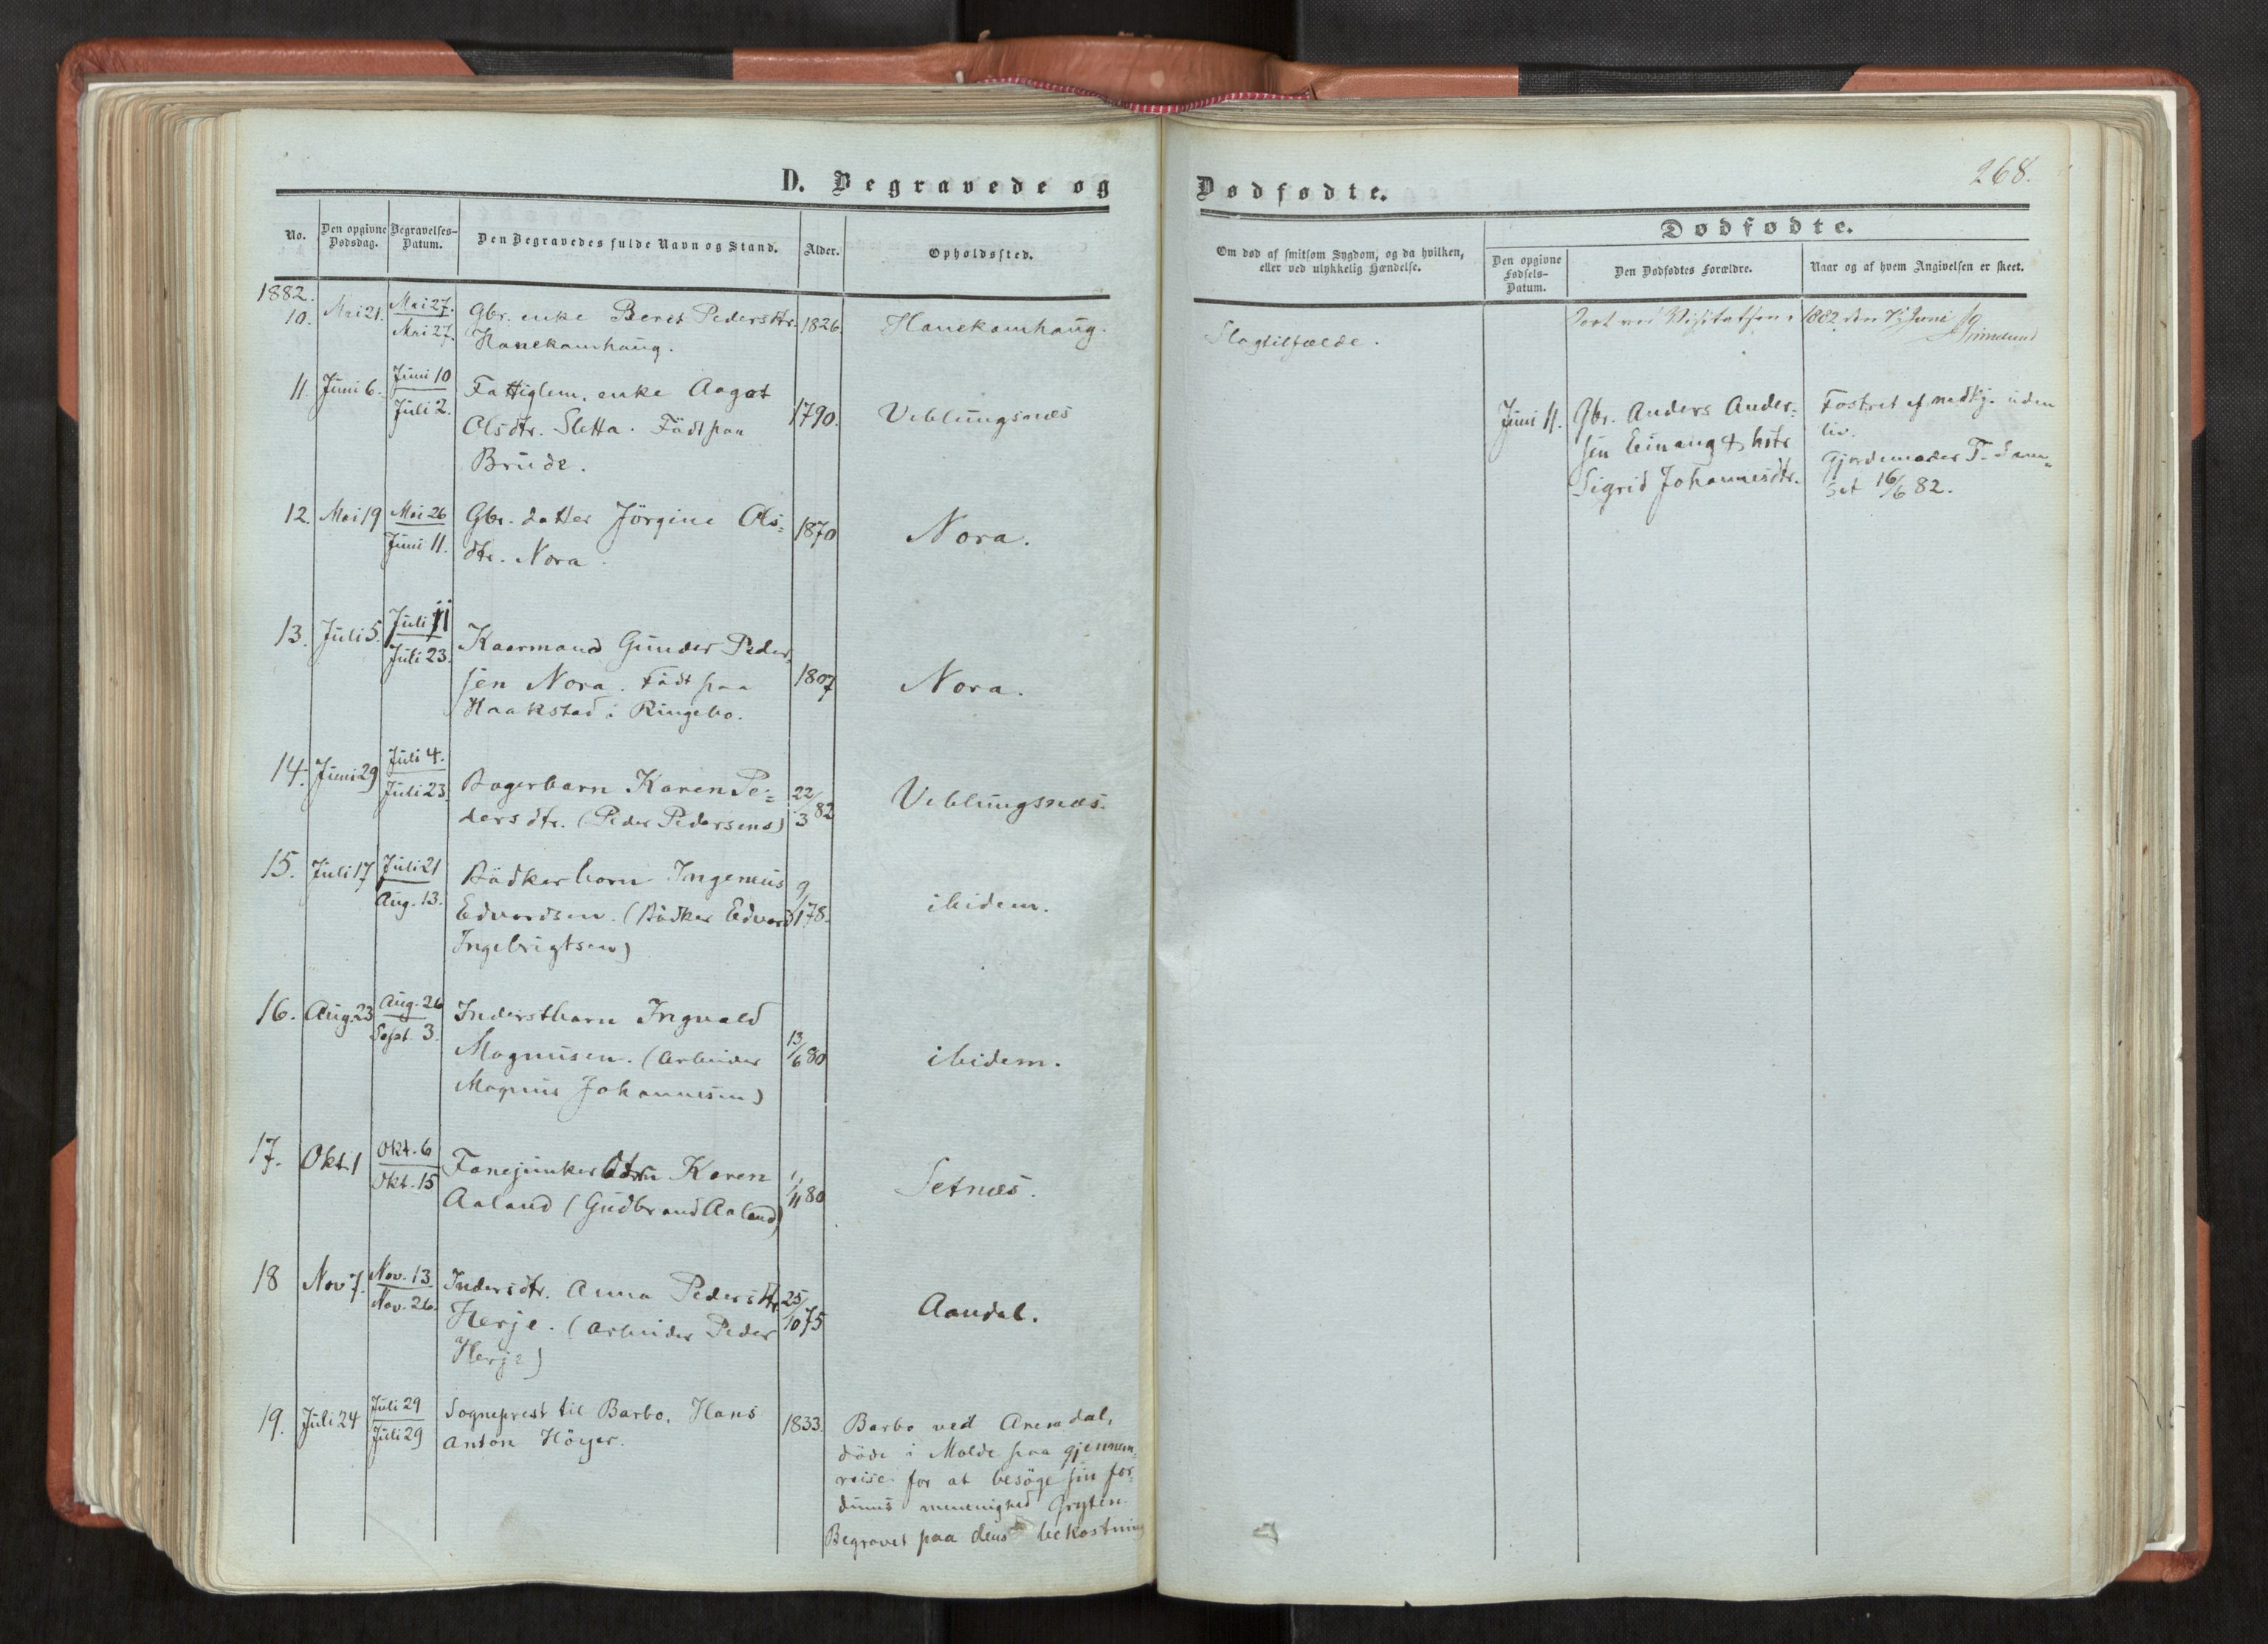 D. Begravede og
No.
Den opgivne Dødsdag.
Begravelses-Datum.
Den Begravedes fulde Navn og Stand.
Alder.
Opholdssted.
1882.
10. Mai 21. Mai 27. Gbr. enke Beret Pedersdtr. 1826. Hanekamhaug.
Mai 27. Hanekamhaug.
11. Juni 6. Juni 10 Fattiglem. enke Aagot
Juli 2. Olsdtr. Sletta. Født paa 1790. Veblungsnæs
Brude.
12. Mai 19 Mai 26 Gbr. datter Jörgine Ols= 1870 Nora.
Juni 11. dtr. Nora.
13. Juli 5. Juli 11
Juli 23. Kaarmand Gunder Peder=
sen Nora. Födt paa 1807 Nora.
Haakstad i Ringebo.
14. Juni 29 Juli 4.
Juli 23. Bagerbarn Karen Pe= 22/3 82 Veblungsnæs.
dersdtr. (Peder Pedersens)
15. Juli 17 Juli 21 Bödkerbarn Ingemus
Aug. 13. Edvardsen. (Bödker Edvard 9/1 78. ibidem.
Ingebrigtsen)
16. Aug. 23 Aug. 26 Inderstbarn Ingvald
Sept. 3.
Magnusen. (Arbeider 13/6 80 ibidem.
Magnus Johannesen)
17. Okt. 1 Okt. 6 Fanejunker Karen
Okt. 15 Aaland (Gudbrand Aaland) 1/11 80 Setnæs.
18 Nov 7. Nov. 13 Indersdtr. Anna Pedersdtr. 25/10 75 Aandal.
Nov. 26. Herje. (Arbeider Peder
Herje)
19. Juli 24 Juli 29 Sogneprest til Barbo, Hans 1833. Barbo ved Arendal,
Juli 29 Anton Höyer. döde i Molde paa gjennem=
reise for at besöge sin for=
dums menighed Gryten.
Begravet paa dens bekostning
Dødfødte.
268.
Om død af smitsom Sygdom, og da hvilken,
eller ved ulykkelig Hændelse.
Dødfødte.
Den opgivne Fødsels-Datum.
Den Dødfødtes Forældre.
Naar og af hvem Angivelsen er skeet.
ved Visitatsen 1882 den 7. Juni
Grimelund
Slagtilfælde.
Juni 11. Gbr. Anders Ander= Fostret uden
sen Einang & hstr liv.
Sigrid Johannesdtr. Gjordemoder T.
set 16/6 82.